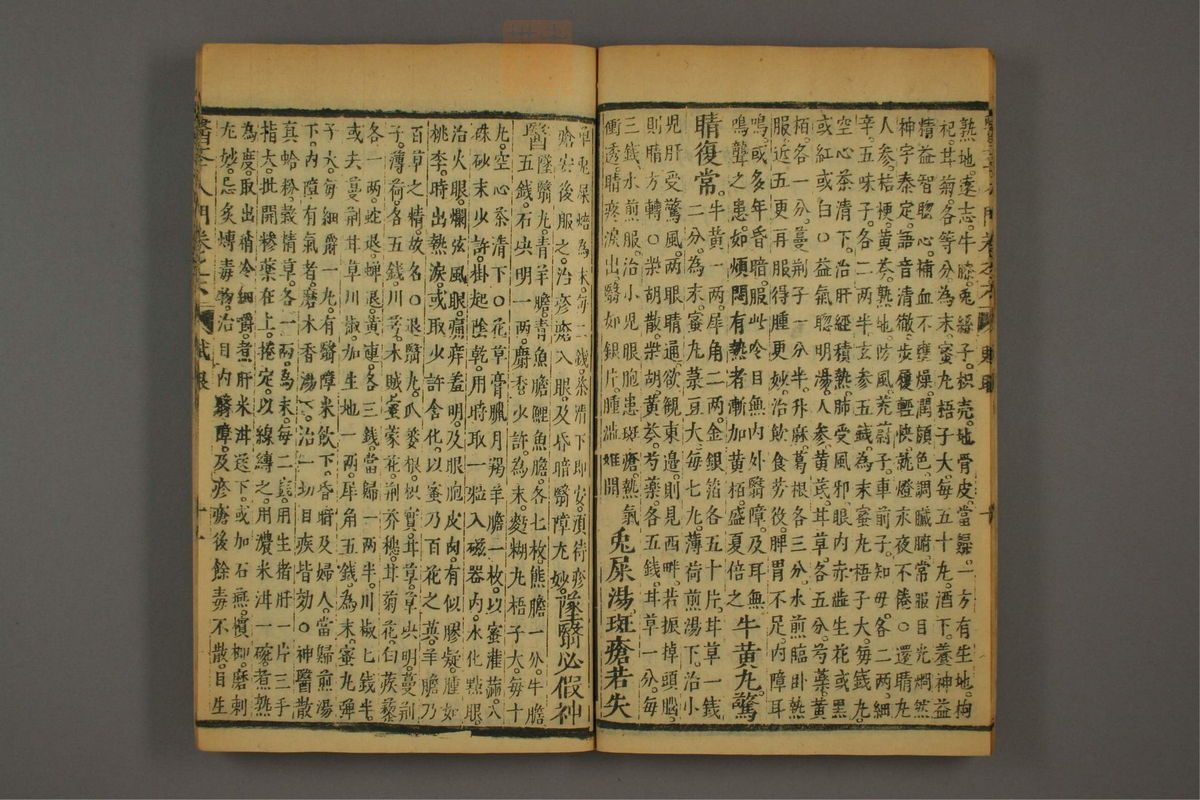 熟地。遠志。牛膝。兔絲子。枳壳。地骨皮。當歸。一方有生地。拘
杞。甘菊。各等分為末。蜜丸梧子大。每五十丸。酒下。養神益
精。益智聰心。補血不壅燥。潤顔色。調臟腑。常服目光烱然
神字泰定。語音清徹。步履輕快。就燈永夜不倦。○還睛丸
人參。桔梗。黄芩。熟地。防風。茺蔚子。車前子。知母。各二兩。細
辛。五味子。各二兩半。玄參五錢。為末。蜜丸梧子大。每錢九。
空心茶清下。治肝經積熱。肺受風邪。眼内赤澁。生花或黑
或紅或白。○益氣聰明湯。人參。黄芪。甘草。各五分。芍藥。黄
栢。各一分。蔓荆子。一分半。升麻。葛根。各三分。水煎。臨卧熱
服。近五更再服。得睡更妙。治飲食劳役。脾胃不足。内障耳
鳴。或多年昏暗。服此令目無内外翳障。及耳無
鳴聾之患。如煩悶有熱者。漸加黄栢。盛夏倍之 牛黄丸驚
睛復常。牛黄一兩。犀角二兩。金銀箔各五十片。甘草一錢
二分。為末。蜜丸菉豆大。每七丸。薄荷煎湯下。治小
児肝受驚風。兩眼睛通。欲觀東邊。則見西畔。若振掉頭腦。
則睛方轉。○柴胡散。柴胡。黄芩。芍藥。各五錢。甘草一分。每
三錢。水煎服。治小児眼胞患斑瘡。熱氣
衝透。睛疼淚出。翳如銀片。腫澁難開 兎屎湯斑瘡若失
草。兎屎焙為末。每二錢。茶清下即安。須待疹
瘡安後服之。治疹瘡入眼。及昏暗翳障尤妙。墜翳必假神
醫墜翳丸。青羊膽。青魚膽。鯉魚膽。各七枚。熊膽一分。牛膽
五錢。石決明一兩。麝香少許。為末。麪糊丸梧子大。每十
丸。空心茶清下。○百草膏。臘月羯羊膽一枚。以蜜灌滿。入
硃砂末少許。掛起陰乾。用時取一粒。入磁器内。水化點眼。
治火眼。爛弦風眼。痛痒羞明。及眼胞皮肉。有似膠凝。腫如
桃李。時出熱淚。或取少許含化。以蜜乃百花之英。羊膽乃
百草之精。故名。○退翳丸。瓜蔞根。枳實。甘草。決明。蔓荆
子。薄荷。各五錢。川芎。木賊。蜜蒙花。荆芥穗。甘菊花。白蒺藜
各一兩。蛇退。蟬退。黄連。各三錢。當歸一兩半。川椒七錢半。
或去蔓荆。甘草。川椒。加生地一兩。犀角五錢。為末。蜜丸弹
子大。每細嚼一丸。有翳障米飲下。昏暗及婦人。當歸煎湯
下。内障有氣者。磨木香湯下。治一切目疾皆効。○神醫散
真蛤粉。穀精草。各一兩。為末。每二錢。用生猪肝一片三手
指大。批開。糝藥在上。捲定。以線縛之。用濃米泔一碗。煮熟
為度。取出稍冷。細嚼。煮肝米泔送下。或加石燕。檳榔。磨刺
尤妙。忌炙煿毒物。治目内翳障。及疹瘡後餘毒不散。目生